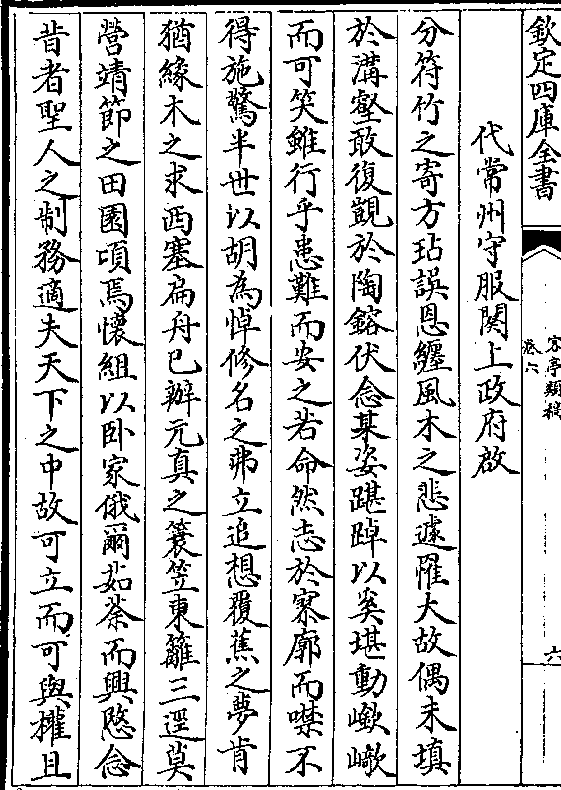 欽定四庫全書
客亭類稿
卷六
六
代常州守服闋上政府啟
分符竹之寄方玷誤恩纏風木之悲遽罹大故偶未填
於溝壑敢復覬於陶鎔伏念某姿踸踔以奚堪動嶔巇
而可笑雖行乎患難而安之若命然志於寥廓而噤不
得施驚半世以胡為悼修名之弗立追想覆蕉之夢肯
猶緣木之求西塞扁舟已辦元真之蓑笠東籬三逕莫
營靖節之田園頃焉懷組以卧家俄爾茹荼而興愍念
昔者聖人之制務適夫天下之中故可立而可與權且